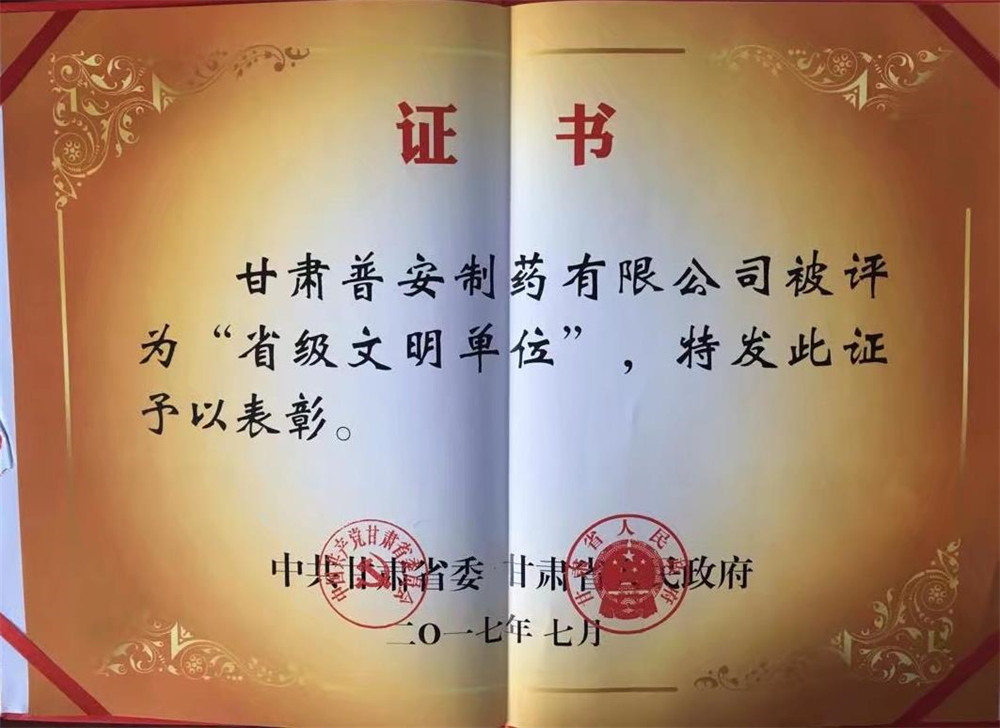 证 书
甘肃普安制药有限公司被评
为“省级文明单位”，特发此证
予以表彰。
中共甘肃省委 甘肃省人民政府
二〇一七年 七月
中国共产党甘肃省委员会
甘肃省人民政府